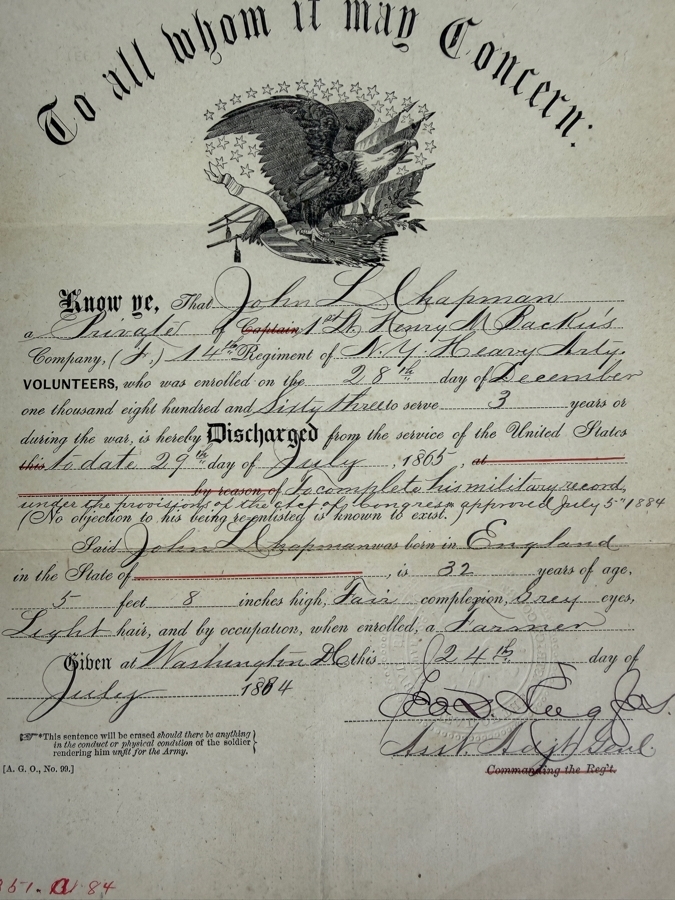 To all whom it may Concern:
Know ye, That John L Chapman
a Private of Captain 1st Lt. Henry M Backus
Company, (F.) 14th Regiment of N.Y. Heavy Arty.
VOLUNTEERS, who was enrolled on the 28th day of December
one thousand eight hundred and Sixty three to serve 3 years or
during the war, is hereby Discharged from the service of the United States
this to date 29th day of July, 1865 at
by reason of To complete his military record
under the provisions of the act of Congress approved July 5" 1884
(No objection to his being re-enlisted is known to exist.)
Said John L Chapman was born in England
in the State of , is 32 years of age,
5 feet 8 inches high, Fair complexion, Grey eyes,
Light hair, and by occupation, when enrolled, a Farmer
Given at Washington DC this 24th day of
July 1884
Asst Adjt Genl.
Commanding the Reg't.
☞*This sentence will be erased should there be anything
in the conduct or physical condition of the soldier
rendering him unfit for the Army.
[A. G. O., No. 99.]
84